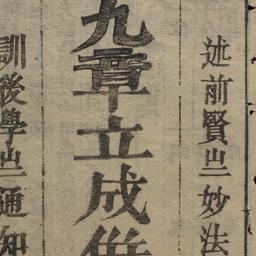 述前賢㞢妙法
九章立成
訓後學㞢通知